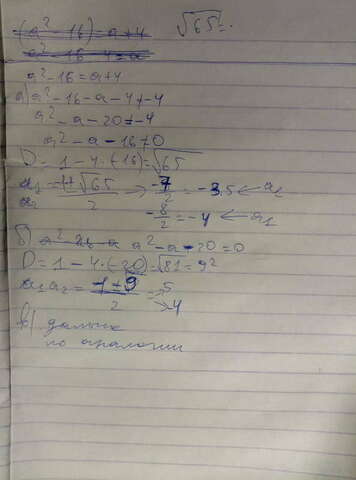 (a²-16)=a+4 √65=.
a²-16-4=a
a²-16=a+4
а) a²-16-a-4≠-4
a²-a-20≠-4
a²-a-16≠0
D=1-4·(-16)=√65
a₁=1±√65/2 → -7/2=-3.5 ← a₂
-8/2=-4 ← a₁
б) a²-a-20=0
D=1-4·(-20)=√81=9²
a₁a₂=-1±9/2=→5
→4
в) дальше
по аналогии